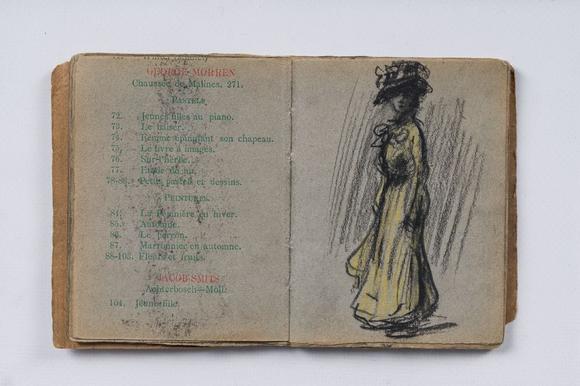 GEORGE MORREN
Chaussée de Malines, 271.
PASTELS
72. Jeunes filles au piano.
73. Le baiser.
74. Femme épinglant son chapeau.
75. Le livre à images.
76. Sur l'herbe.
77. Etude de nu.
Petits pastels et dessins.
PEINTURES.
84. La Pépinière en hiver.
85. Automne.
86. Le perron.
87. Marronnier en automne.
88-103. Fleurs et fruits.
JACOB SMITS
Achterbosch-Moll.
104. Jeune fille.